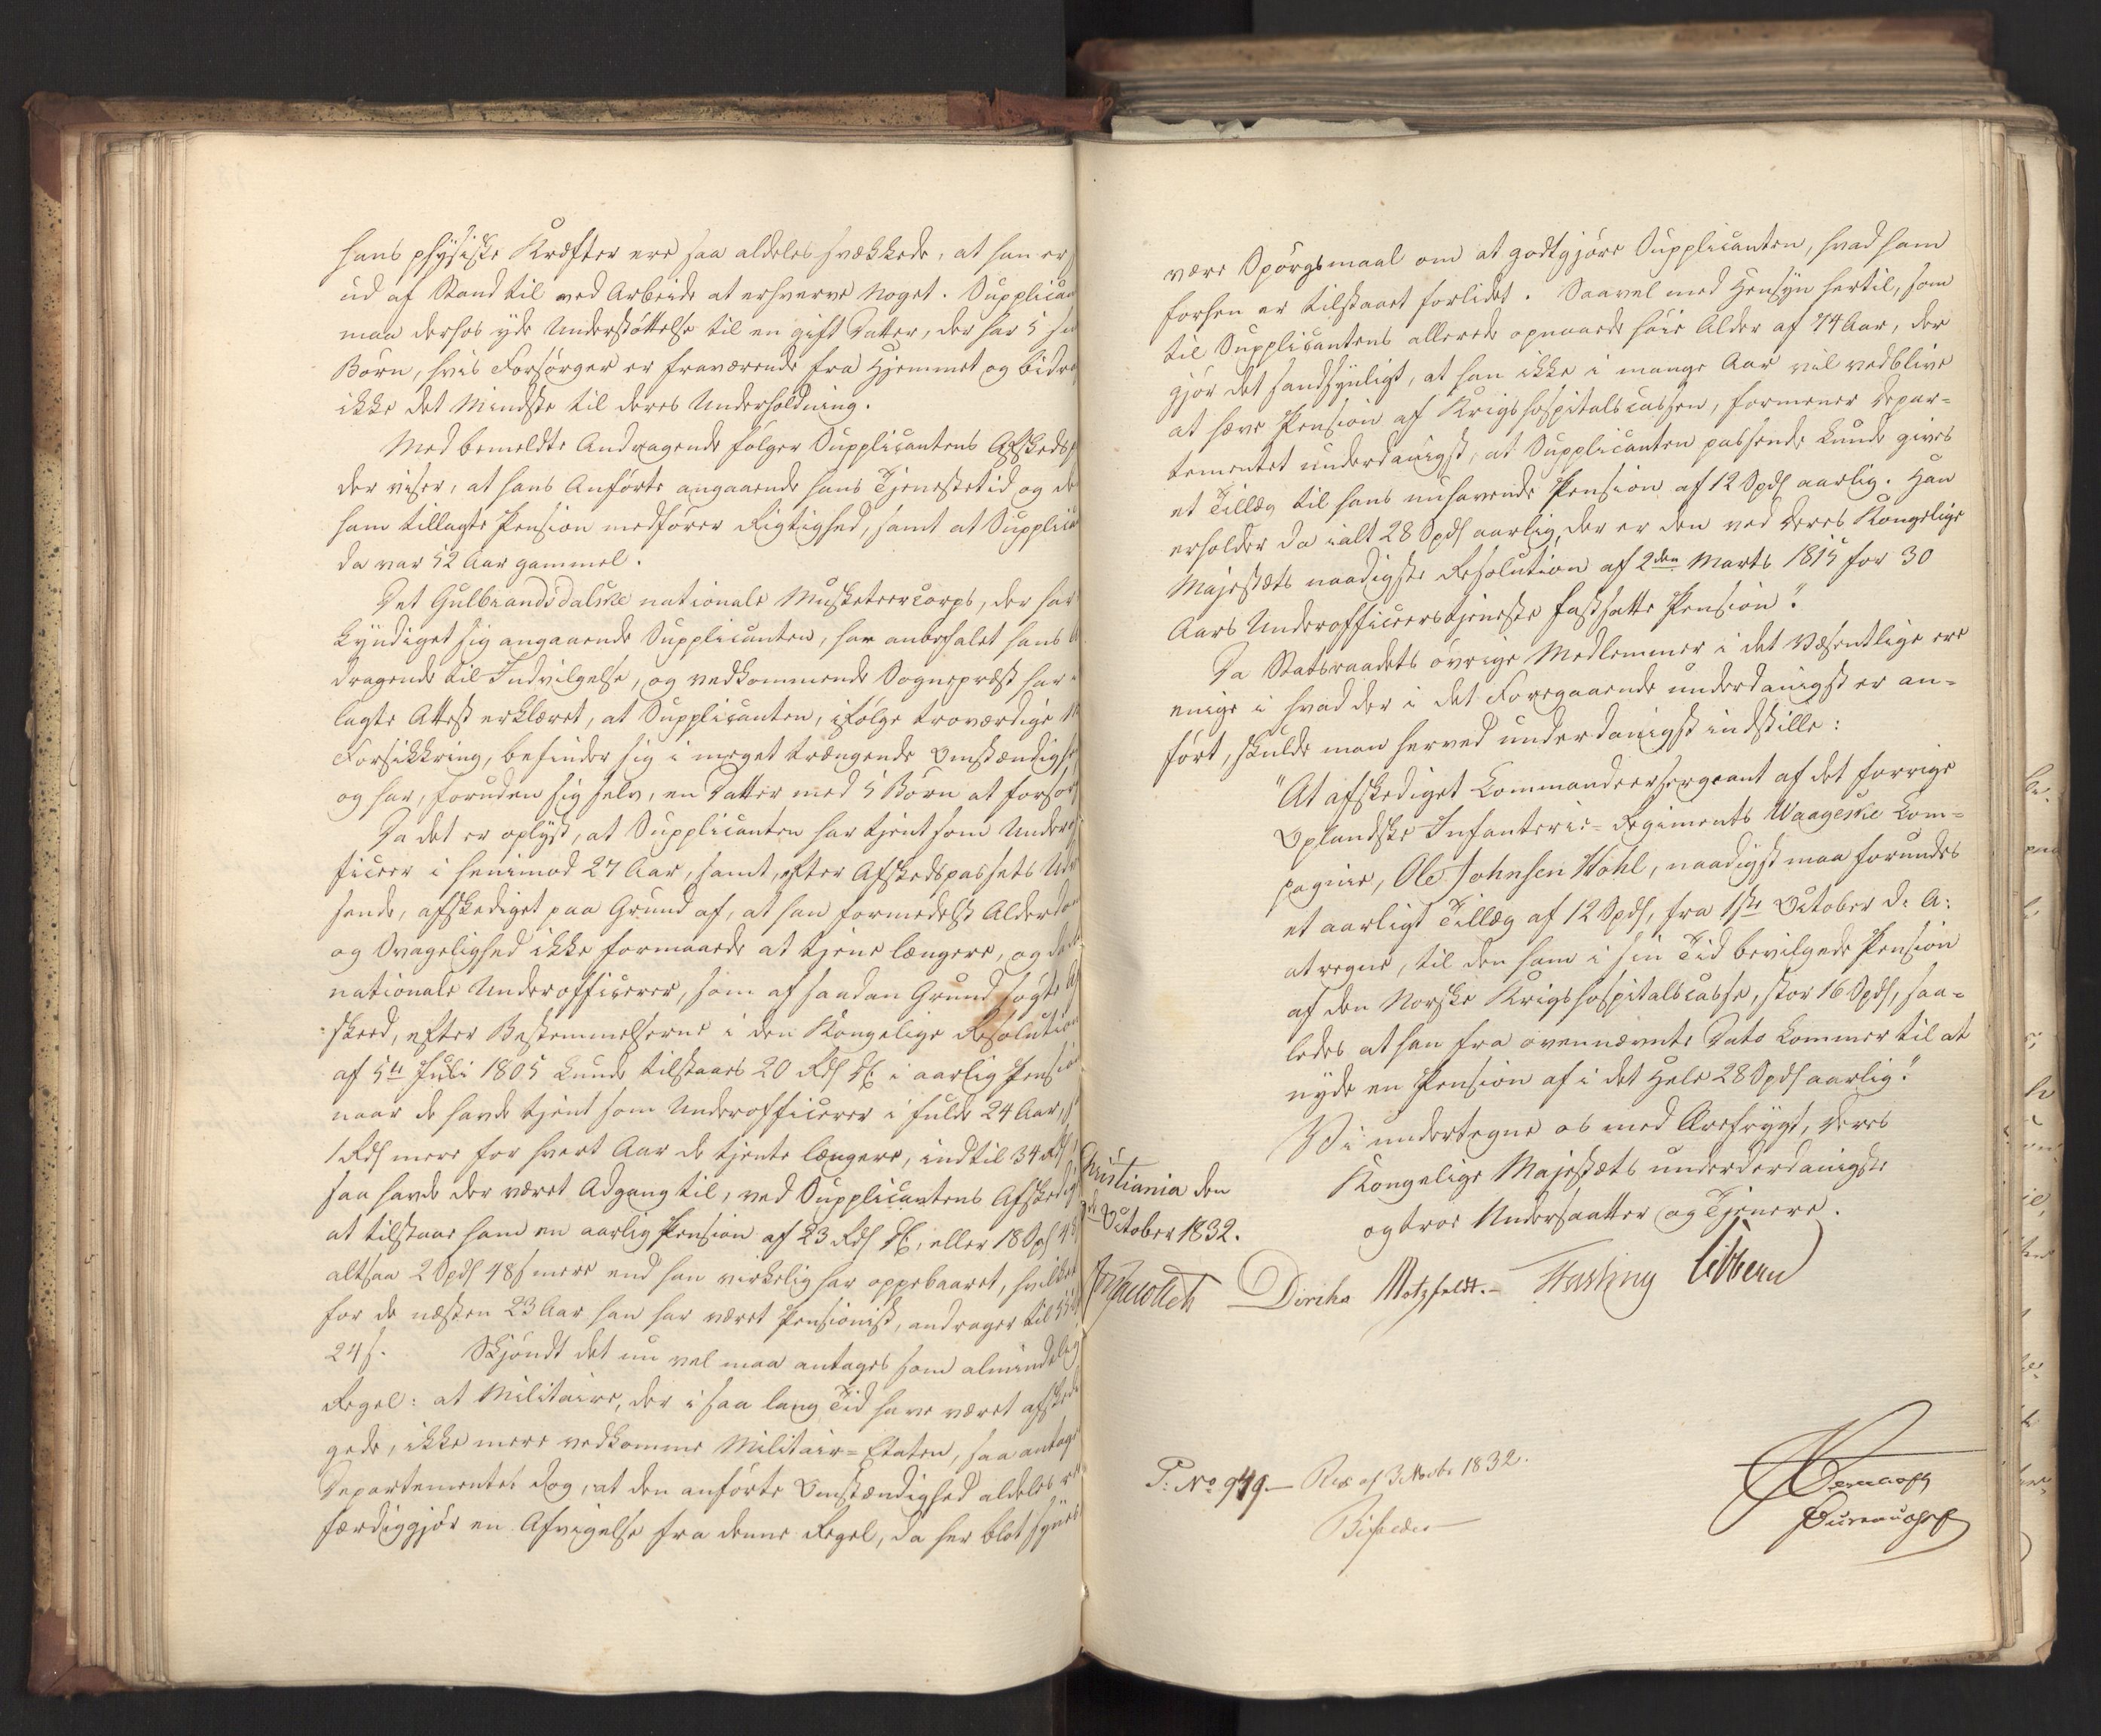 hans physiske Kræfter ere saa aldeles svækkede, at han er
ud af Stand til ved Arbeide at erhverve Noget. Supplican
maa derhos yde Understøttelse til en gift Datter, der har 5
Børn, hvis Forsørger er fraværende fra Hjemmet og bidra
ikke det Mindste til deres Underholdning.
Med bemeldte Andragende følger Supplicantens Afskeds
der viser, at hans Anførte angaaende hans Tjenestetid og de
ham tillagte Pension medfører Rigtighed, samt at Supplica
da var 52 Aar gammel.
Det Gulbrandsdalske nationale Musketeercorps, der har
kyndiget sig angaaende Supplicanten, har anbefalet hans
dragende til Indvilgelse, og vedkommende Sognepræst har
lagte Attest erklæret, at Supplicanten, ifølge troværdige
Forsikkring, befinder sig i meget trængende Omstændighe
og har, foruden sig selv, en Datter med 5 Børn at forsør
Da det er oplyst, at Supplicanten har tjent som Undero
ficeer i henimod 27 Aar, samt, efter Afskedspassets Ud
sende, afskediget paa Grund af, at han formedelst Alderdom
og Svagelighed ikke formaaede at tjene længere, og da
nationale Underofficerer, som af saadan Grund søgte Af
skeed, efter Bestemmelserne i den Kongelige Resolution
af 5te Juli 1805 kunde tilstaaes 20 Rdl DC i aarlig Pension
naar de havde tjent som Underofficerer i fulde 24 Aar,
1 Rdl mere for hvert Aar de tjente længere, indtil 34 Rdl
saa havde der været Adgang til, ved Supplicantens Afskedig
at tilstaae ham en aarlig Pension af 23 Rdl DC, eller 18 Spd 48
altsaa 2 Spdl 48 s mere end han virkelig har oppebaaret, hvilket
for de næsten 23 Aar han har været Pensionist, andrager til
24 s. Skjøndt det nu vel maa antages som almindelig
Regel: at Militaire, der i saa lang Tid have været afske
gede, ikke mere vedkomme Militair-Etaten, saa antage
Departementet dog, at den anførte Omstændighed aldeles
færdiggjør en Afvigelse fra denne Regel, da her blot synes
være Spørgsmaal om at godtgjøre Supplicanten, hvad ham
forhen er tilstaaet forlidet. Saavel med Hensyn hertil, som
til Supplicantens allerede opnaaede høie Alder af 74 Aar, der
gjør det sandsynligt, at han ikke i mange Aar vil vedblive
at hæve Pension af Krigshospitalscassen, formener Depar-
tementet underdanigst, at Supplicanten passende kunde gives
et Tillæg til hans nuhavende Pension af 12 Spdl aarlig. Han
erholder da ialt 28 Spdl aarlig, der er den ved Deres Kongelige
Majestæts naadigste Resolution af 2den Marts 1815 for 30
Aars Underofficeerstjeneste fastsatte Pension".
Da Statsraadets øvrige Medlemmer i det Væsentlige ere
enige i hvad der i det Foregaaende underdanigst er an-
ført, skulde man herved underdanigst indstille:
"At afskediget Commandeersergeant af det forrige
Oplandske Infanterie-Regiments Waageske Com-
pagnie, Ole Johnsen Hohl, naadigst maa forundes
et aarligt Tillæg af 12 Spdl, fra 1ste October d. A.
at regne, til den ham i sin Tid bevilgede Pension
af den Norske Krigshospitalscasse, stor 16 Spdl, saa-
ledes at han fra ovennævnte Dato kommer til at
nyde en Pension af i det Hele 28 Spdl aarlig".
Vi undertegne os med Ærefrygt, Deres
Kongelige Majestæts underderdanigste
og troe Undersaatter og Tjenere.
Christiania den
October 1832.
Collett Diriks Motzfeldt.- Fasting Sibbern
P: No 949.- Res af 3 Novbr 1832.
Bifaldes
Bureauchef